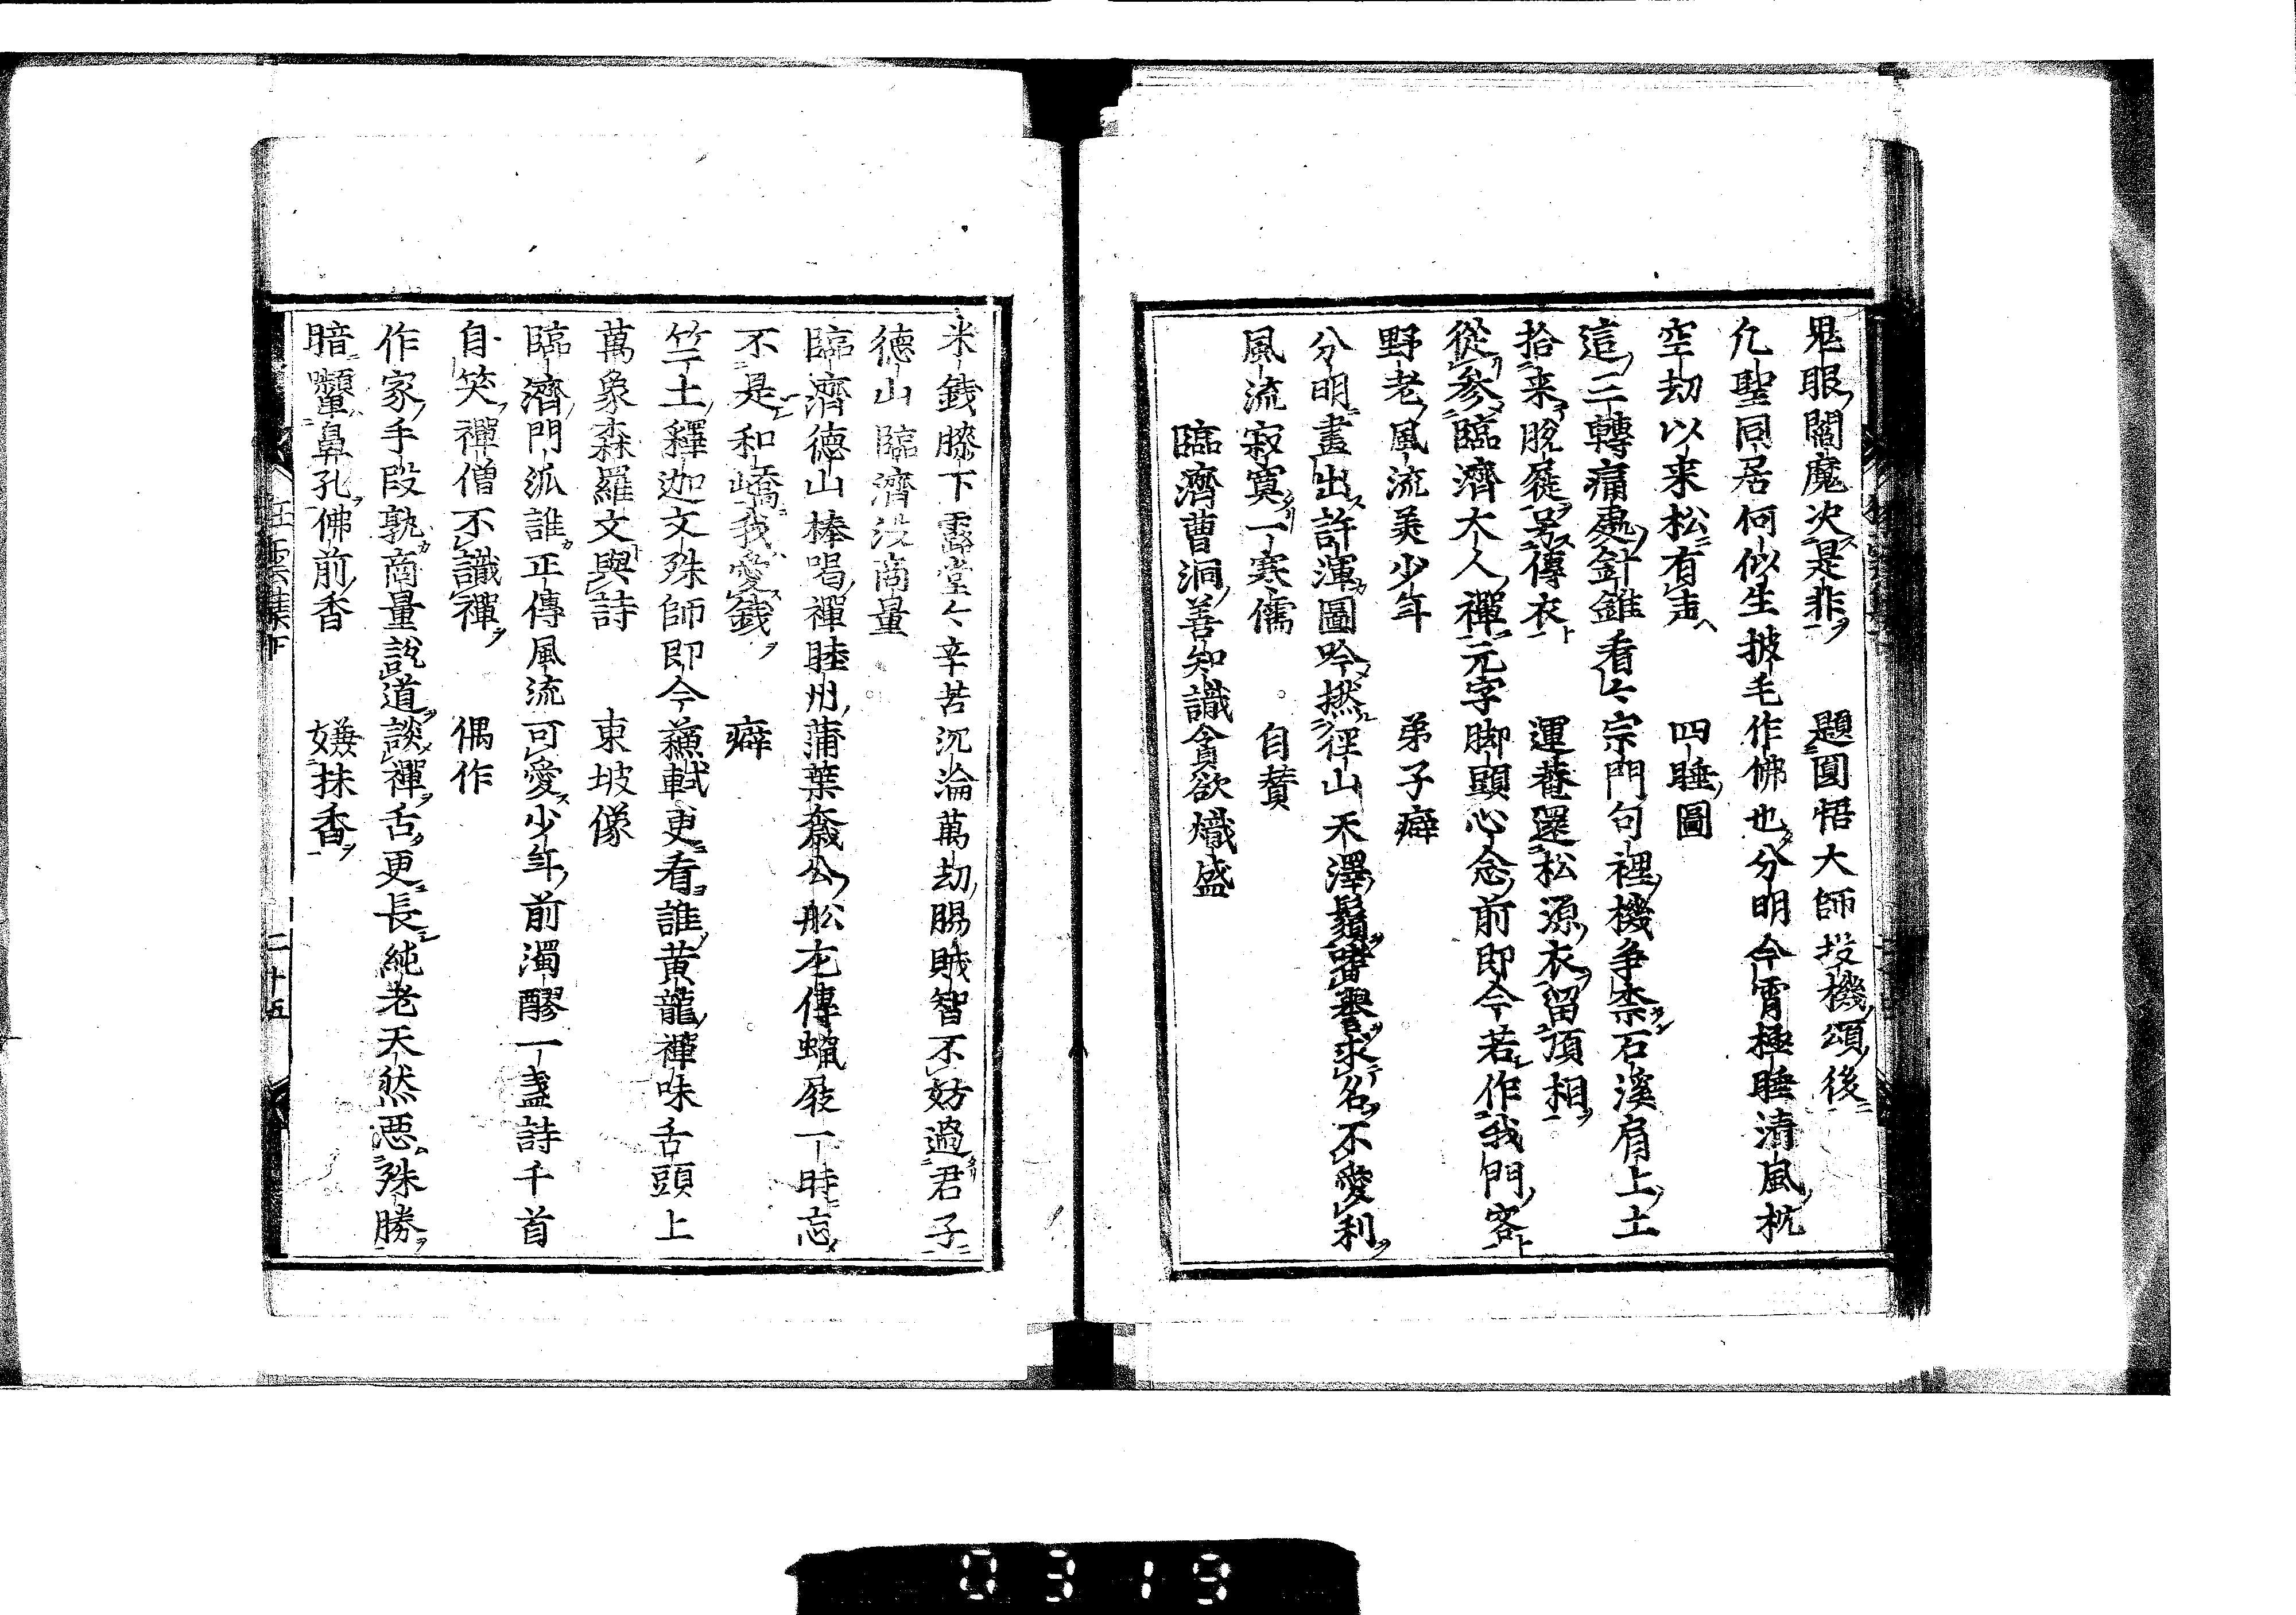 鬼眼閻魔決是非　題圓悟大師投機頌後
凢聖同居何似生披毛作佛也分明今宵極睡清風枕
空劫以来松有声　四睡圖
這三轉痛處針錐看〻宗門句裡機争柰石溪肩上土
拾来脫屣另傳衣　運菴還松源衣留頂相
從参臨濟大人禪元字脚頭心念前即今若作我門客
野老風流美少年　弟子癖
分明畫出許渾圖吟撚徑山天澤鬚求名不愛利
風流寂寞一寒儒　自賛
臨濟曹洞善知識貪欲熾盛
米錢膝下露堂〻辛苦沉淪萬劫賜賊智不妨過君子
德山臨濟没商量
臨濟德山棒喝禪睦州蒲葉欸公舩尤傳蝋屐一時忘
不是和嶠我愛錢　癖
竺土釋迦文殊師即今蘓軾更看誰黄龍禪味舌頭上
萬象森羅文與詩　東坡像
臨濟門派誰正傳風流可愛少年前濁醪一盞詩千首
自笑禪僧不識禪　偶作
作家手段孰商量說道談禪舌更長純老天然悪殊勝
暗顰鼻孔佛前香　嫌抹香
狂雲集下　二十五
0319